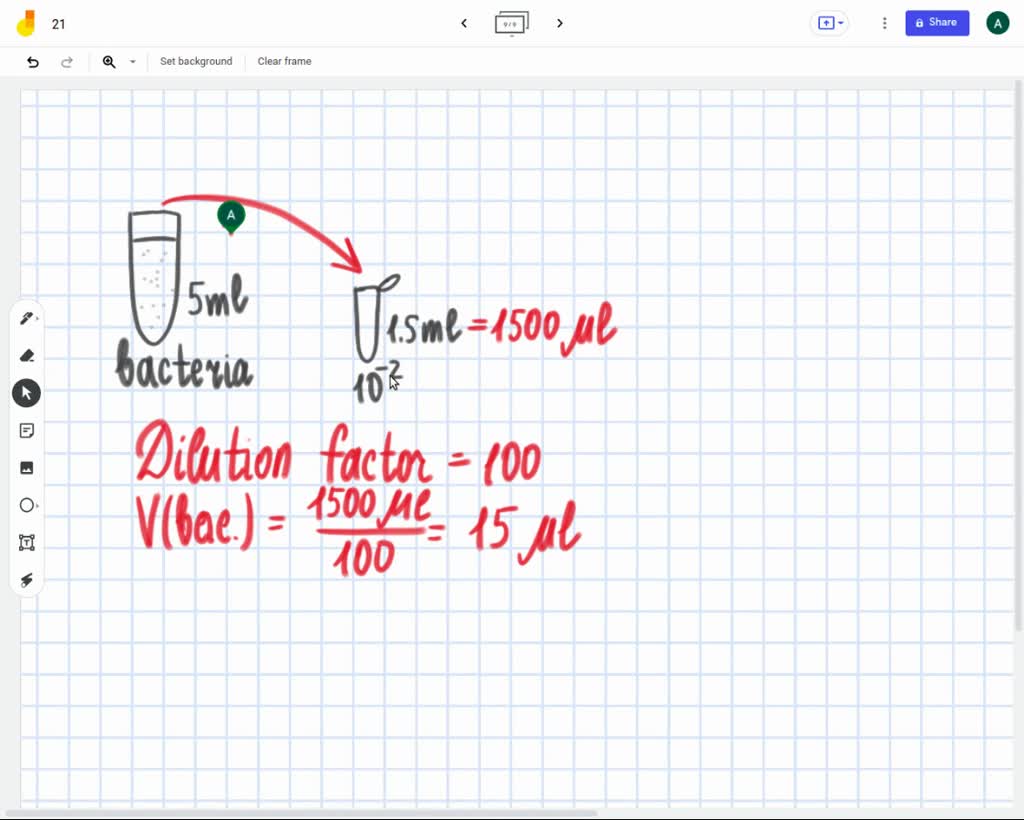 21
9/9
Share
A
Set background
Clear frame
A
5ml
1.5ml = 1500 μl
bacteria
10⁻²
Dilution factor = 100
V(bac.) = 1500 μl / 100 = 15 μl